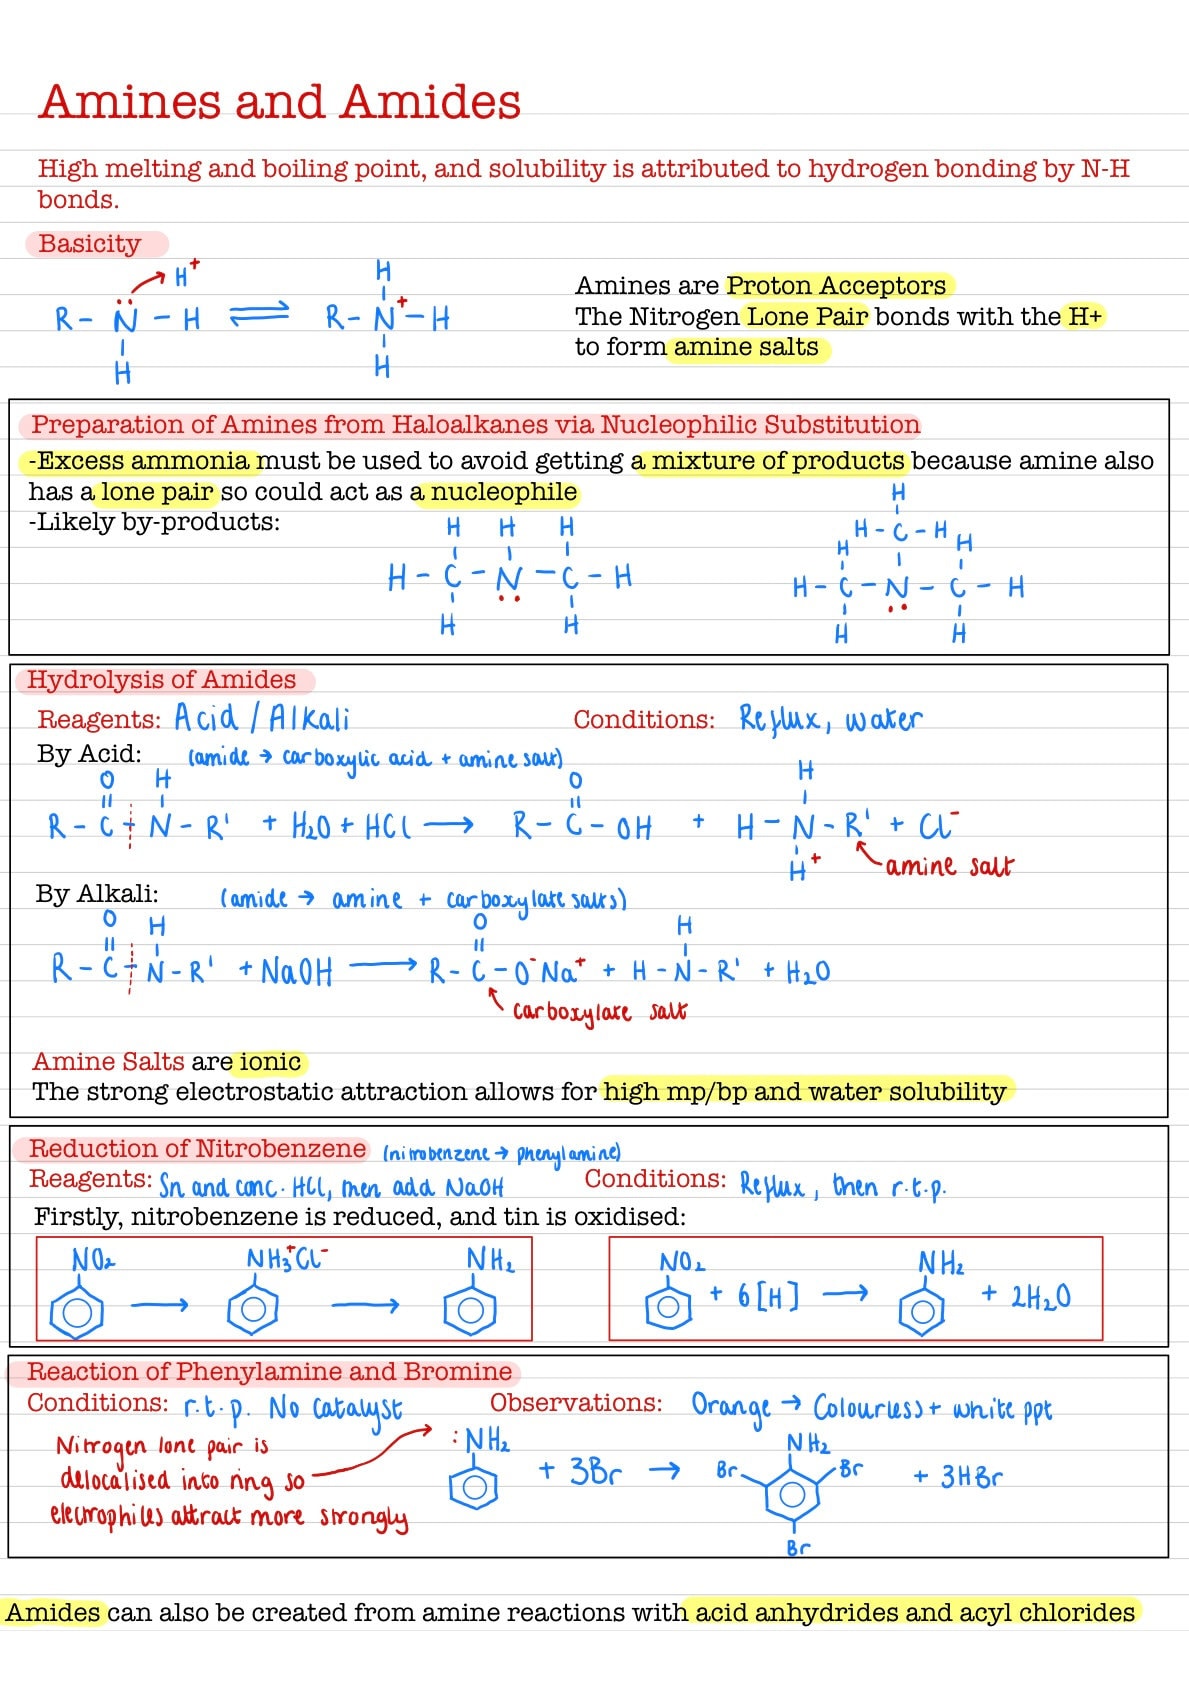 Amines and Amides
High melting and boiling point, and solubility is attributed to hydrogen bonding by N-H
bonds.
Basicity
H⁺
R - N̈ - H ⇌ R - N⁺ - H
H H
H
Amines are Proton Acceptors
The Nitrogen Lone Pair bonds with the H+
to form amine salts
Preparation of Amines from Haloalkanes via Nucleophilic Substitution
-Excess ammonia must be used to avoid getting a mixture of products because amine also
has a lone pair so could act as a nucleophile
-Likely by-products:
H H H
H - C - N - C - H
H H
H
H - C - H
H H
H - C - N - C - H
H H
Hydrolysis of Amides
Reagents: Acid / Alkali Conditions: Reflux, water
By Acid: (amide → carboxylic acid + amine salt)
O H O H
R - C - N - R' + H₂O + HCl → R - C - OH + H - N - R' + Cl⁻
H⁺ amine salt
By Alkali: (amide → amine + carboxylate salts)
O H O H
R - C - N - R' + NaOH → R - C - O⁻Na⁺ + H - N - R' + H₂O
carboxylate salt
Amine Salts are ionic
The strong electrostatic attraction allows for high mp/bp and water solubility
Reduction of Nitrobenzene (nitrobenzene → phenylamine)
Reagents: Sn and conc. HCl, then add NaOH Conditions: Reflux, then r.t.p.
Firstly, nitrobenzene is reduced, and tin is oxidised:
NO₂ → NH₃⁺Cl⁻ → NH₂
NO₂ + 6[H] → NH₂ + 2H₂O
Reaction of Phenylamine and Bromine
Conditions: r.t.p. No catalyst Observations: Orange → Colourless + white ppt
Nitrogen lone pair is
delocalised into ring so
electrophiles attract more strongly
:NH₂ + 3Br → NH₂ Br Br Br + 3HBr
Amides can also be created from amine reactions with acid anhydrides and acyl chlorides